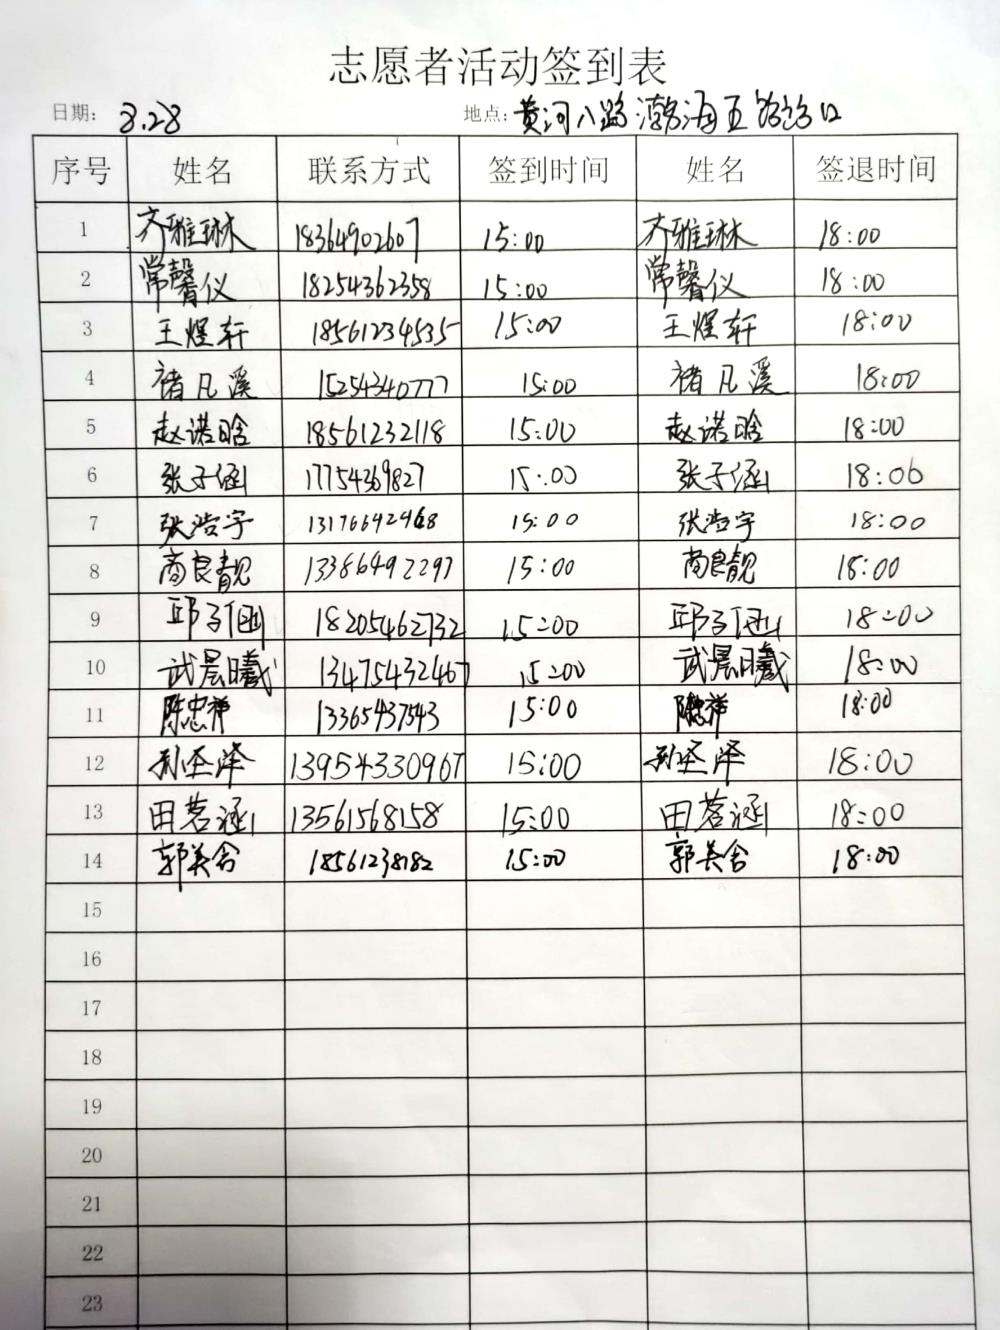 志愿者活动签到表
日期: 3.28 地点: 黄河八路渤海五路路口
序号 姓名 联系方式 签到时间 姓名 签退时间
1 齐雅琳 18364902607 15:00 齐雅琳 18:00
2 常馨仪 18254362358 15:00 常馨仪 18:00
3 王煜轩 18561234535 15:00 王煜轩 18:00
4 褚凡溪 15254340777 15:00 褚凡溪 18:00
5 赵诺晗 18561232118 15:00 赵诺晗 18:00
6 张子涵 17754369827 15:00 张子涵 18:00
7 张浩宇 13176642468 15:00 张浩宇 18:00
8 商良靓 13386492297 15:00 商良靓 18:00
9 邱子涵 18205462732 15:00 邱子涵 18:00
10 武晨曦 13475432467 15:00 武晨曦 18:00
11 陈忠祥 13365437543 15:00 陈忠祥 18:00
12 孙圣泽 13954330967 15:00 孙圣泽 18:00
13 田茗涵 13561568158 15:00 田茗涵 18:00
14 郭美含 18561238182 15:00 郭美含 18:00
15
16
17
18
19
20
21
22
23